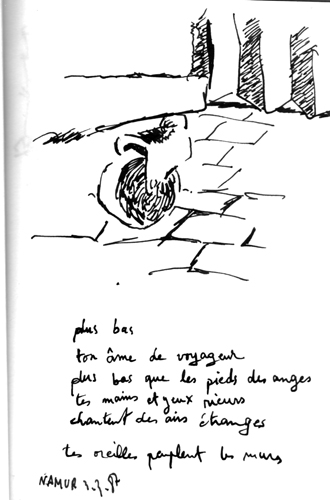 plus bas
ton âme de voyageur
plus bas que les pieds des anges
tes mains et yeux rieurs
chantent des airs étranges
tes oreilles peuplent les murs
NAMUR